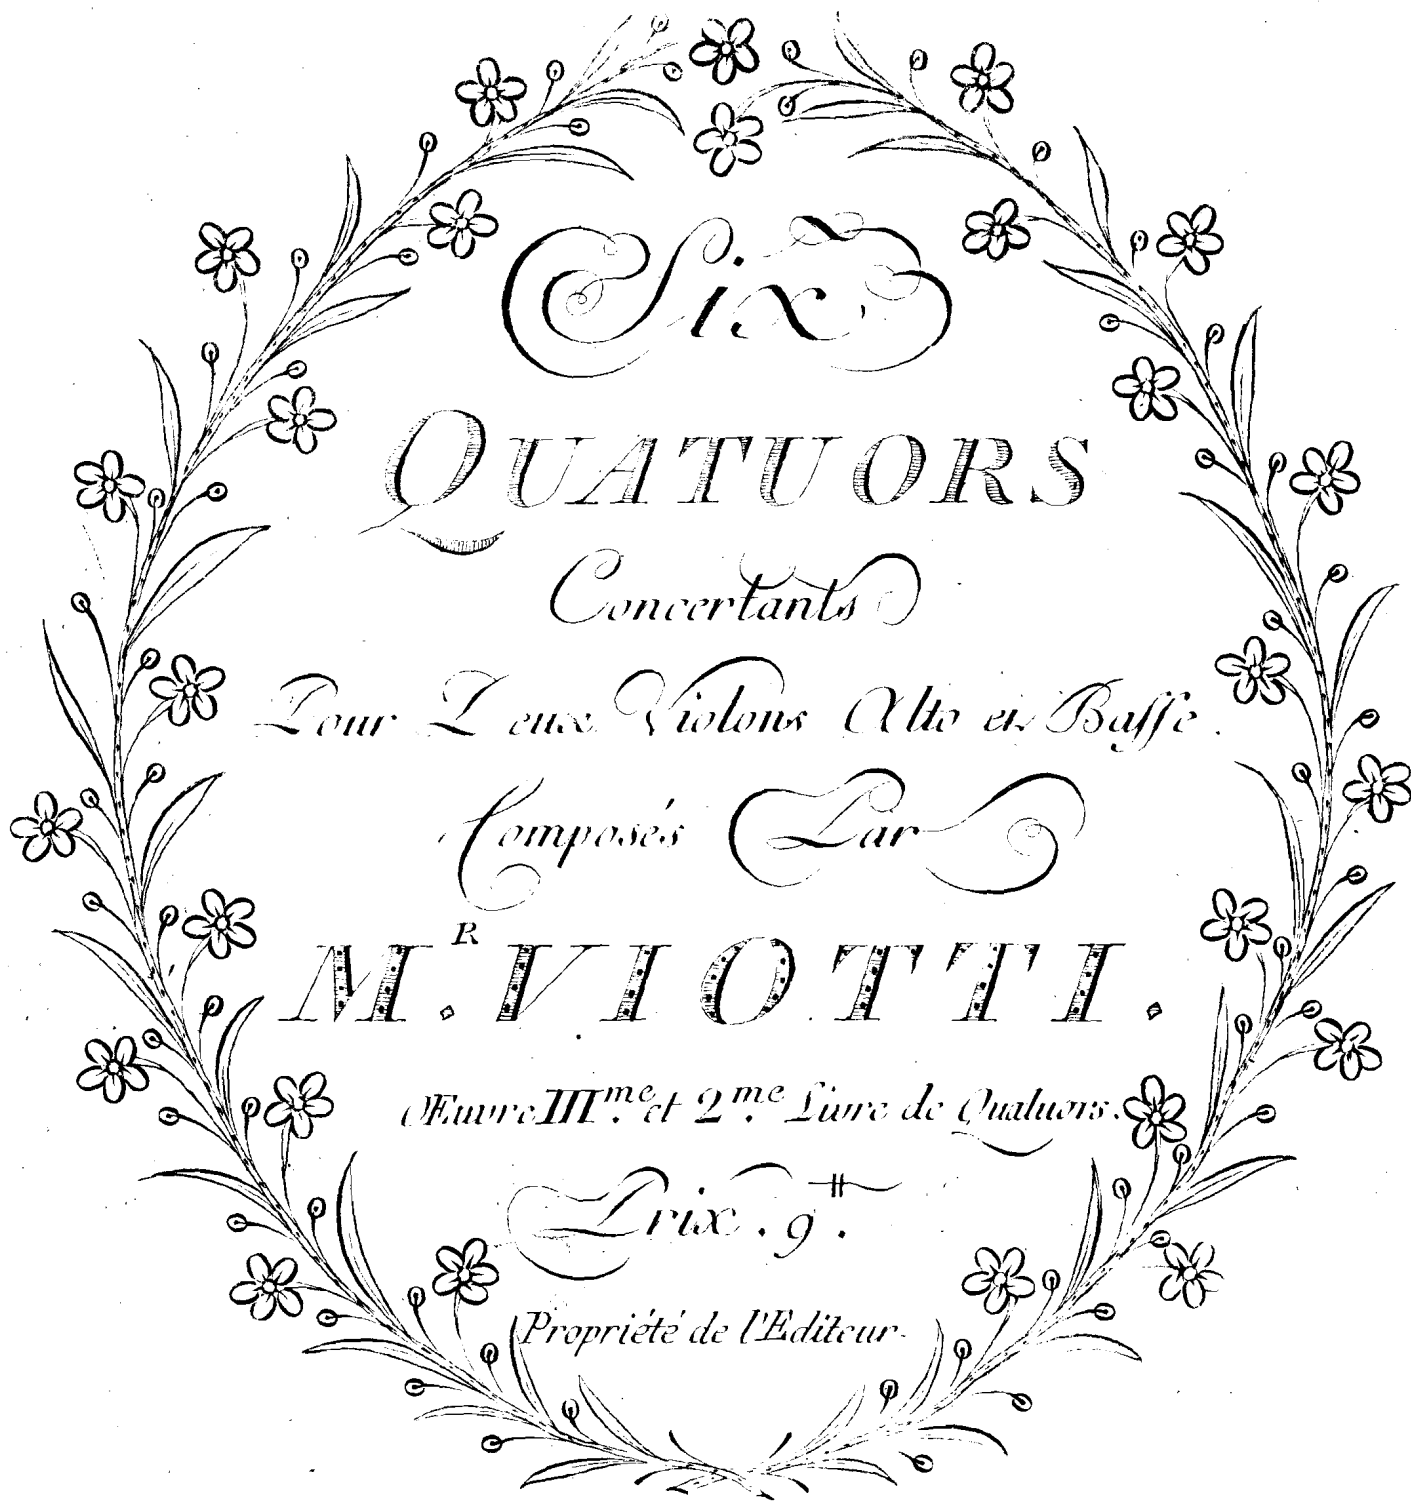 Six
QUATUORS
Concertants
Pour Deux Violons Alto et Basse.
Composés Par
M.R VIOTTI.
Œuvre III.me et 2.me Livre de Quatuors.
Prix. 9.#
Propriété de l'Editeur